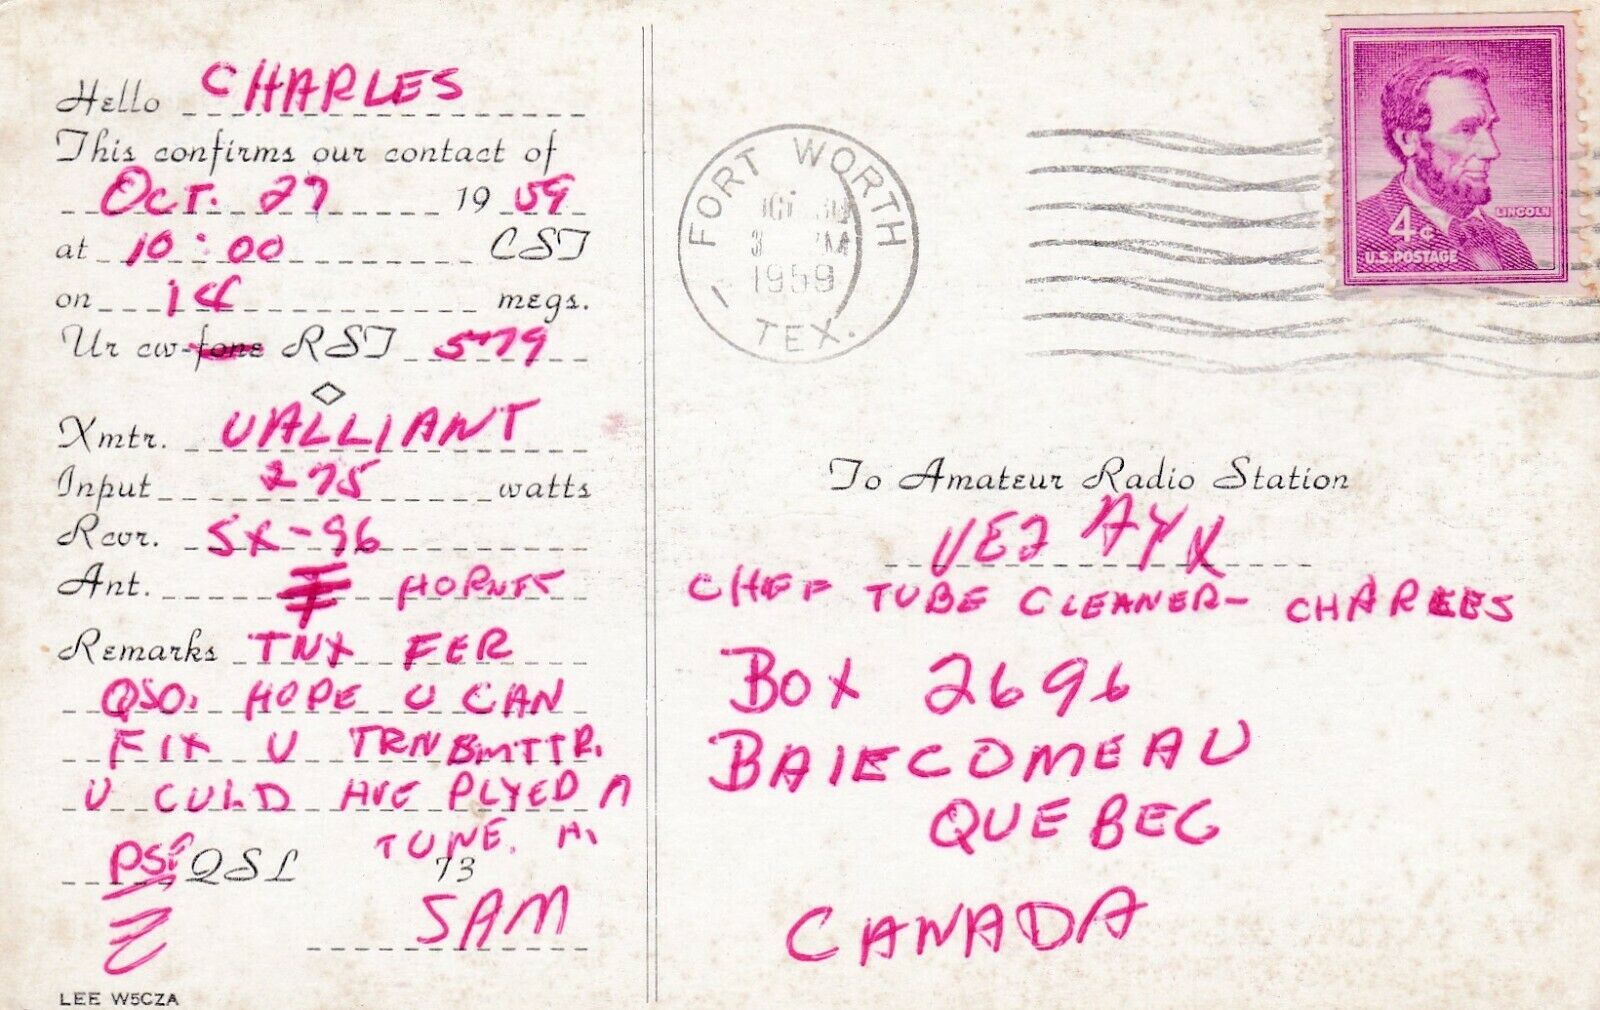 Hello CHARLES
This confirms our contact of
OCT. 27 19 59
at 10:00 CST
on 14 megs.
Ur cw-fone RST 579
Xmtr. VALLIANT
Input 275 watts
Rcvr. SX-96
Ant. HORNET
Remarks TNX FER
QSO. HOPE U CAN
FIX U TRNBMTTR.
U CULD HVE PLYED A
TUNE. H.
PSE QSL 73
SAM
LEE W5CZA
FORT WORTH
1959
1 TEX.
4¢ LINCOLN
U.S. POSTAGE
To Amateur Radio Station
VE2 AYX
CHEF TUBE CLEANER- CHARLES
BOX 2696
BAIECOMEAU
QUEBEC
CANADA